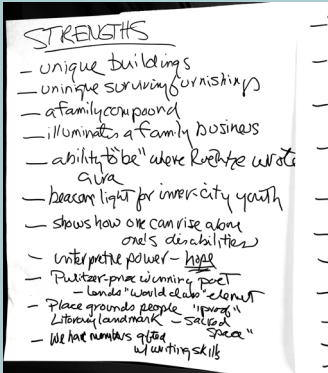 STRENGTHS
— unique buildings
— uninque surviving furnishings
— a family compound
— illuminates a family business
— ability to "be" where Roethke wrote
aura
— beacon light for inner-city youth
— shows how one can rise above
one's disabilities
— interpretive power – hope
— Pulitzer-prize winning poet
– lends "world class" element
— Place grounds people "proof"
Literary landmark – Sacred
Space"
— We have members gifted
w/ writing skills